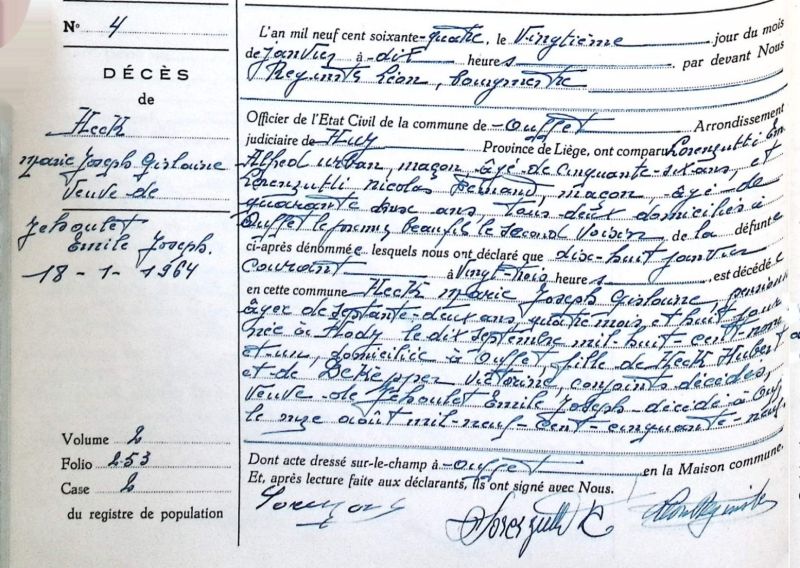 N° 4
DÉCÈS
de
Heck
Marie Joseph Gislaine
Veuve de
Jehoulet
Emile Joseph.
18 - 1 - 1964
Volume 2
Folio 253
Case 2
du registre de population
L'an mil neuf cent soixante-quatre, le vingtième jour du mois
de janvier à dix heures par devant Nous
Regimste Léon, bourgmestre
Officier de l'Etat Civil de la commune de Ouffet Arrondissement
judiciaire de Huy Province de Liège, ont comparu Lorenzutti
Alfred Urban, maçon, âgé de cinquante-six ans, et
Lorenzutti Nicolas Fernand, maçon, âgé de
quarante deux ans, tous deux domiciliés à
Ouffet le premier beaufils le second voisin de la défunte
ci-après dénommée lesquels nous ont déclaré que dix-huit janvier
courant à vingt-trois heures, est décédée
en cette commune Heck Marie Joseph Gislaine,
âgée de septante-deux ans, quatre mois, et huit jour
née à Hody le dix septembre mil-huit-cent-non
et-un, domiciliée à Ouffet, fille de Heck Hubert
et de Dekepper Victorine, conjoints décédés,
Veuve de Jehoulet Emile Joseph décédé à Ouf
le onze août mil-neuf-cent-cinquante-neuf.
Dont acte dressé sur-le-champ à Ouffet en la Maison commune.
Et, après lecture faite aux déclarants, ils ont signé avec Nous.